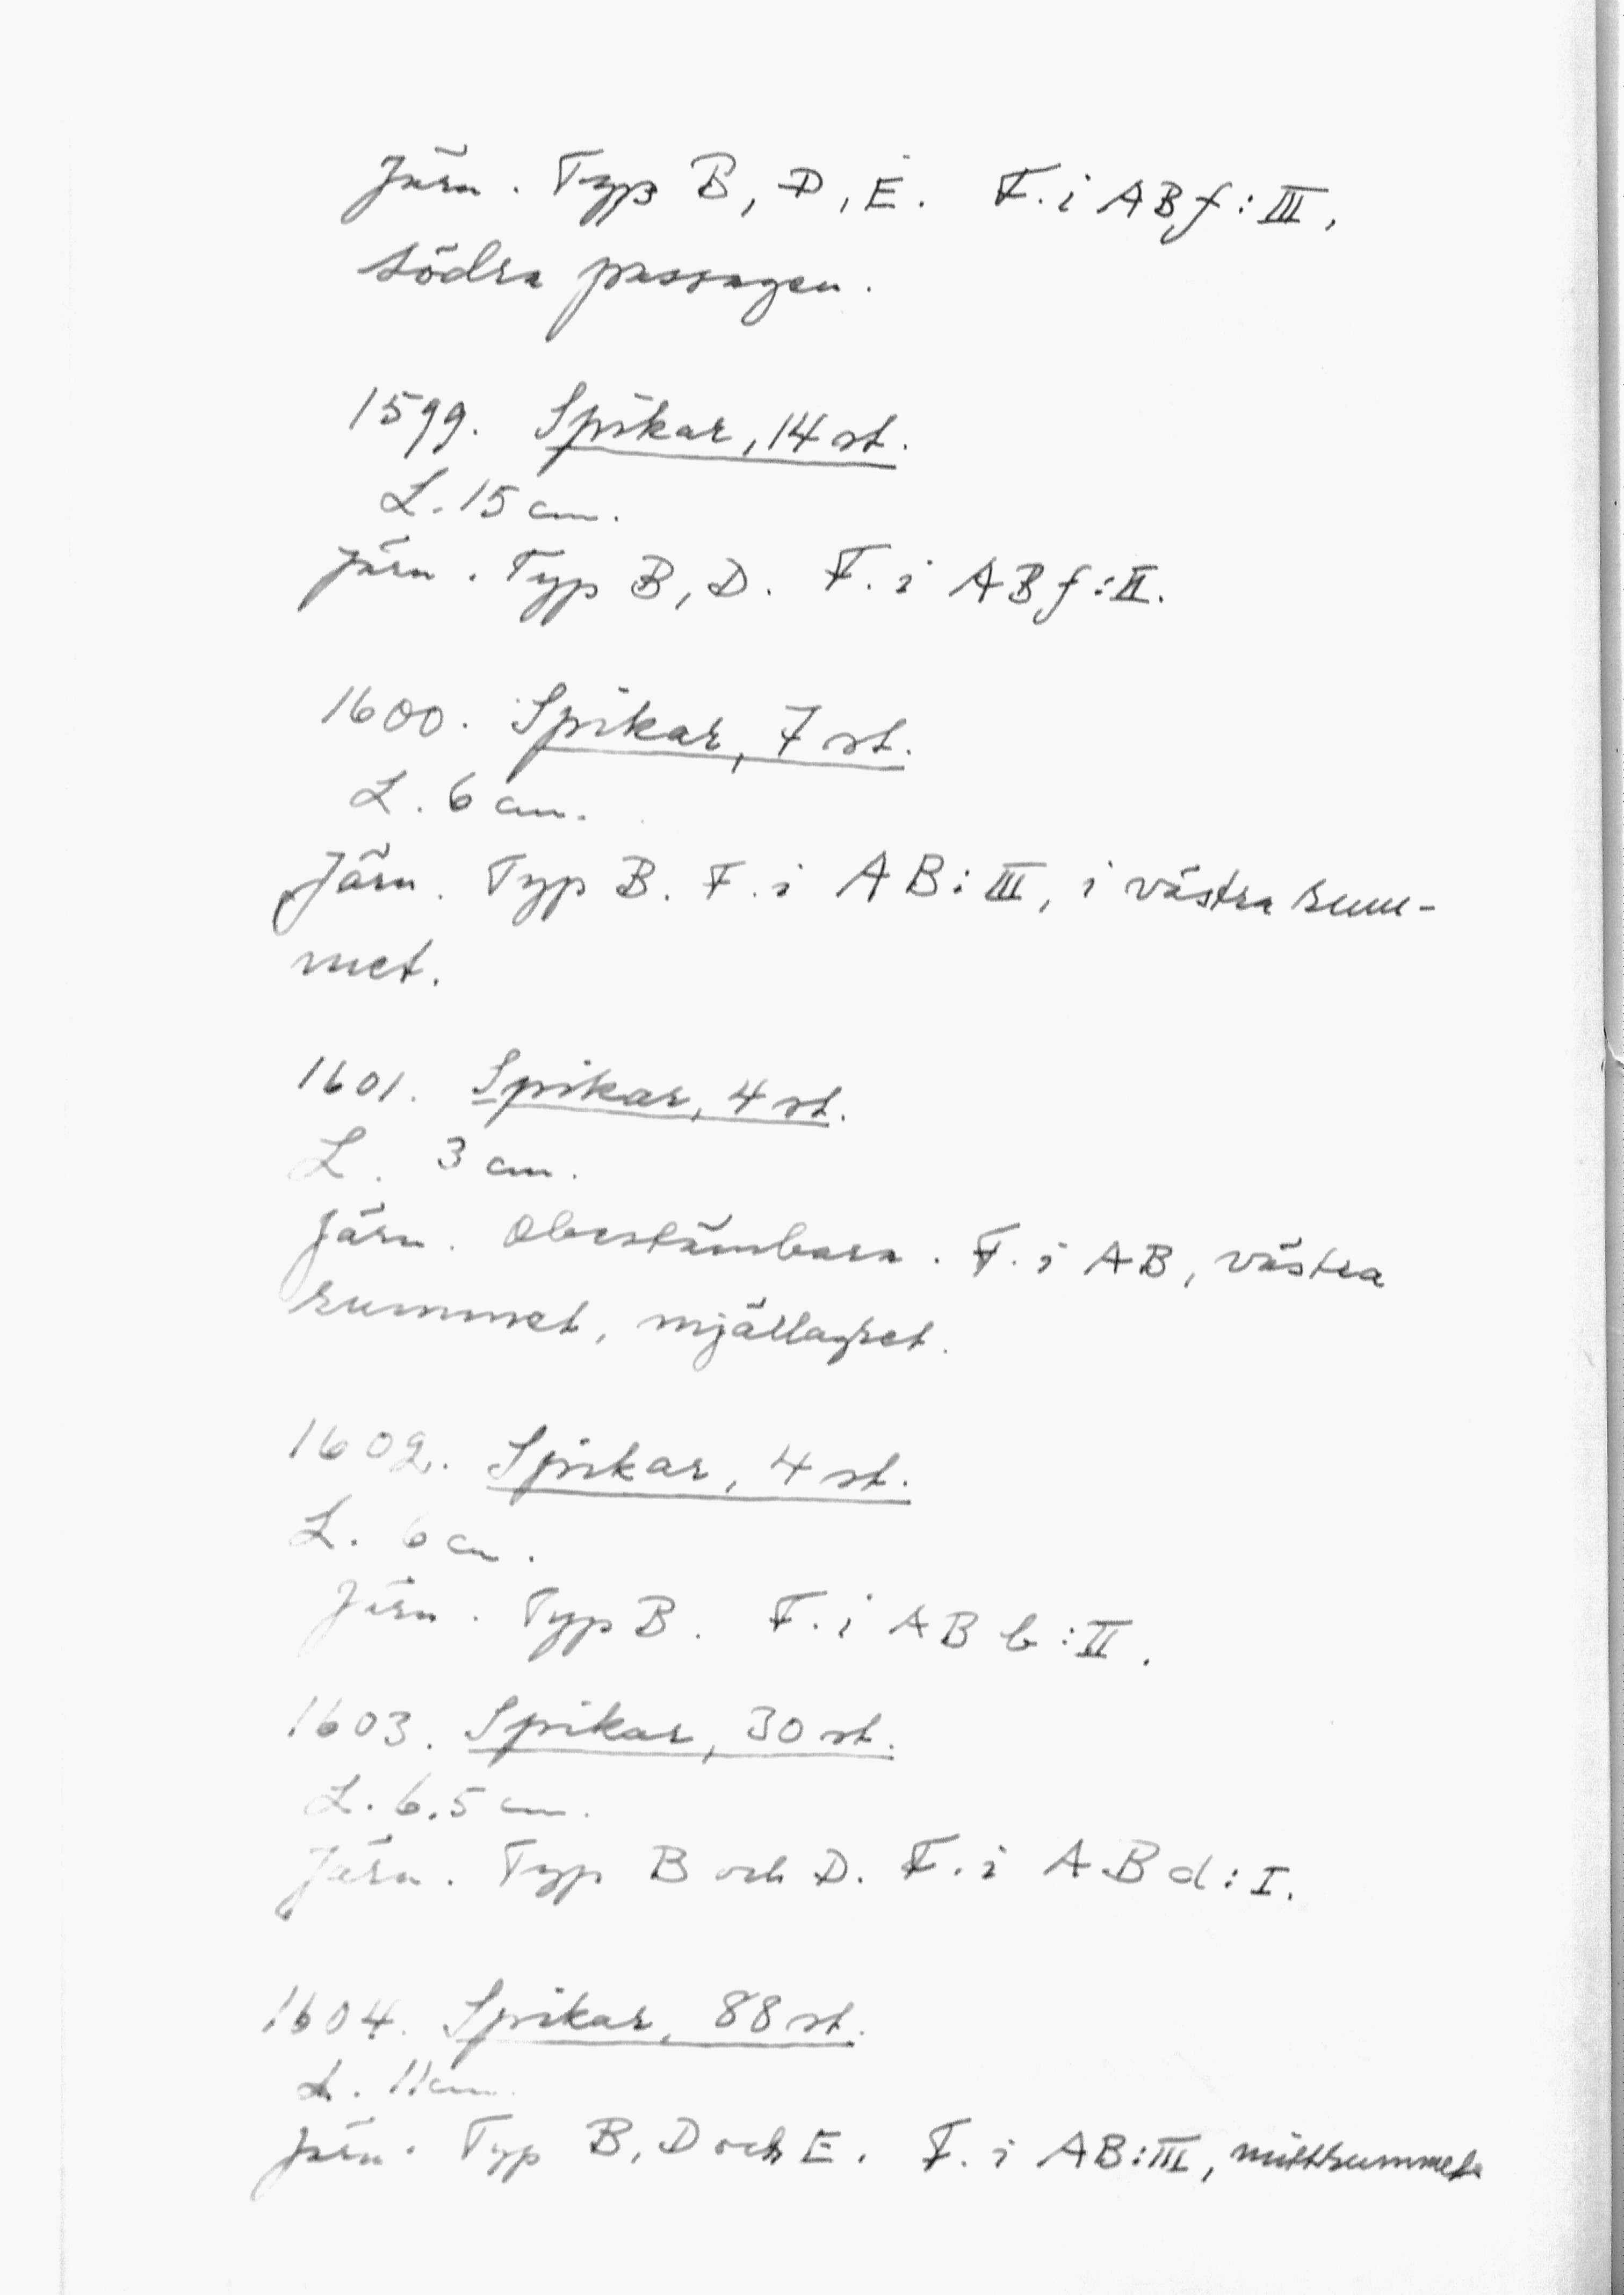 Järn. Typ B, D, E. F. i ABf:III,
södra passagen.
1599. Spikar, 14 st.
L. 15 cm.
Järn. Typ B, D. F. i ABf:II.
1600. Spikar, 7 st.
L. 6 cm.
Järn. Typ B. F. i AB:III, i västra rum-
met.
1601. Spikar, 4 st.
L. 3 cm.
Järn. Obestämbara. F. i AB, västra
rummet, mjällagret.
1602. Spikar, 4 st.
L. 6 cm.
Järn. Typ B. F. i ABb:II.
1603. Spikar, 30 st.
L. 6.5 cm.
Järn. Typ B och D. F. i ABd:I.
1604. Spikar, 88 st.
L. 11 cm.
Järn. Typ B, D och E. F. i AB:III, mittrummets